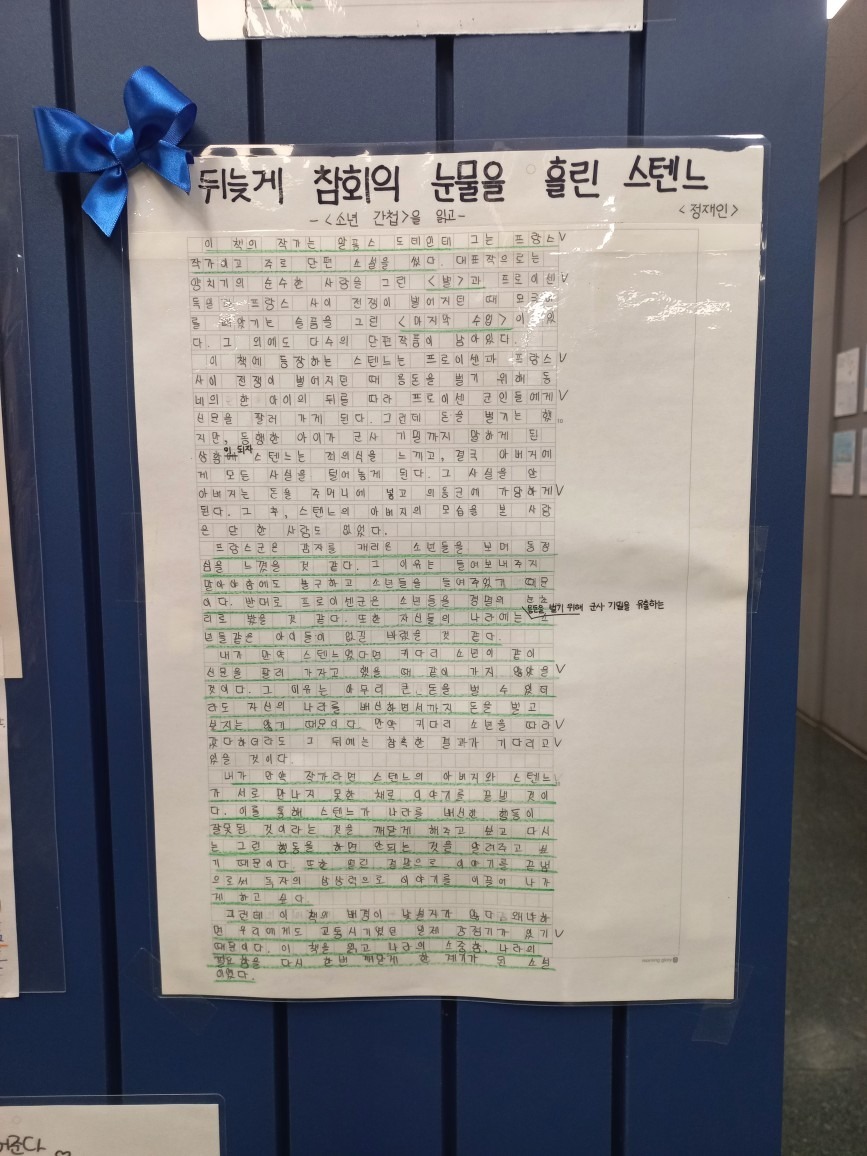 뒤늦게 참회의 눈물을 흘린 스텐느
-<소년 간첩>을 읽고-
<정재인>
이 책의 작가는 알퐁스 도데인데 그는 프랑스
작가이고 주로 단편 소설을 썼다. 대표작으로는
양치기의 순수한 사랑을 그린 <별>과 프로이센
프랑스 사이 전쟁이 벌어지던 때 모국어
를 빼앗기는 슬픔을 그린 <마지막 수업>이 있
다. 그 외에도 다수의 단편작품이 남아있다.
이 책에 등장하는 스텐느는 프로이센과 프랑스
사이 전쟁이 벌어지던 때 용돈을 벌기 위해 동
네의 한 아이의 뒤를 따라 프로이센 군인들에게
신문을 팔러 가게 된다. 그런데 돈을 벌기는 했
10
지만, 동행한 아이가 군사 기밀까지 말하게 된
상황이 되자 스텐느는 죄의식을 느끼고, 결국 아버지에
게 모든 사실을 털어놓게 된다. 그 사실을 안
아버지는 돈을 주머니에 넣고 의용군에 가담하게
된다. 그 후, 스텐느의 아버지의 모습을 본 사람
은 단 한 사람도 없었다.
프랑스군은 감자를 캐러온 소년들을 보며 동정
심을 느꼈을 것 같다. 그 이유는 들여보내주지
말아야 함에도 불구하고 소년들을 들여주었기 때문
이다. 반대로 프로이센군은 소년들을 경멸의 눈초
리로 봤을 것 같다. 또한 자신들의 나라에는 소
용돈을 벌기 위해 군사 기밀을 유출하는
년들같은 아이들이 없길 바랬을 것 같다.
내가 만약 스텐느였다면 키다리 소년이 같이
신문을 팔러 가자고 했을 때 같이 가지 않았을
것이다. 그 이유는 아무리 큰 돈을 벌 수 있더
라도 자신의 나라를 배신하면서까지 돈을 벌고
싶지는 않기 때문이다. 만약 키다리 소년을 따라
갔다하더라도 그 뒤에는 참혹한 결과가 기다리고
있을 것이다.
내가 만약 작가라면 스텐느의 아버지와 스텐느
가 서로 만나지 못한 채로 이야기를 끝낼 것이
다. 이를 통해 스텐느가 나라를 배신한 행동이
잘못된 것이라는 것을 깨닫게 해주고 싶고 다시
는 그런 행동을 하면 안되는 것을 알려주고 싶
기 때문이다. 또한 열린 결말으로 이야기를 끝냄
으로써 독자의 상상력으로 이야기를 이끌어 나가
게 하고 싶다.
그런데 이 책의 배경이 낯설지가 않다. 왜냐하
면 우리에게도 고통시기였던 일제 강점기가 있기
때문이다. 이 책을 읽고 나라의 소중함, 나라의
필요함을 다시 한번 깨닫게 한 계기가 된 소설
이었다.